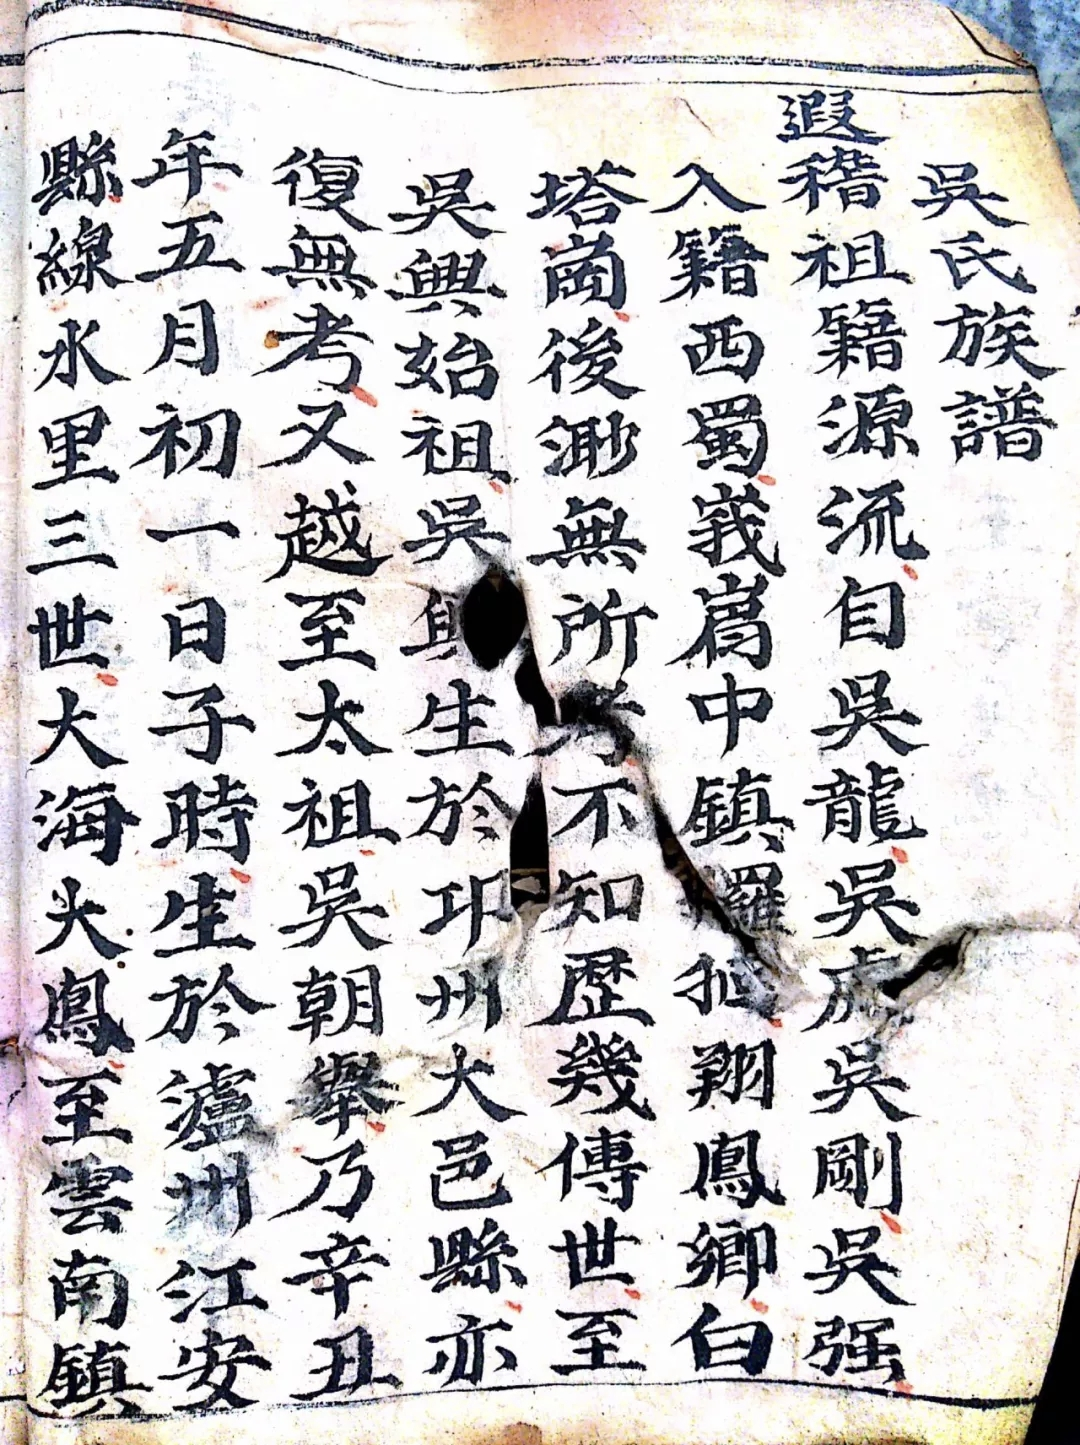 吳氏族譜
遐稽祖籍源流自吳龍吳虎吳剛吳强
入籍西蜀峩嵋中鎮羅翔鳳鄉白
塔崗後渺無所考不知歷幾傳世至
吳興始祖吳興生於邛州大邑縣亦
復無考又越至太祖吳朝舉乃辛丑
年五月初一日子時生於瀘州江安
縣綿水里三世大海大鳳至雲南鎮